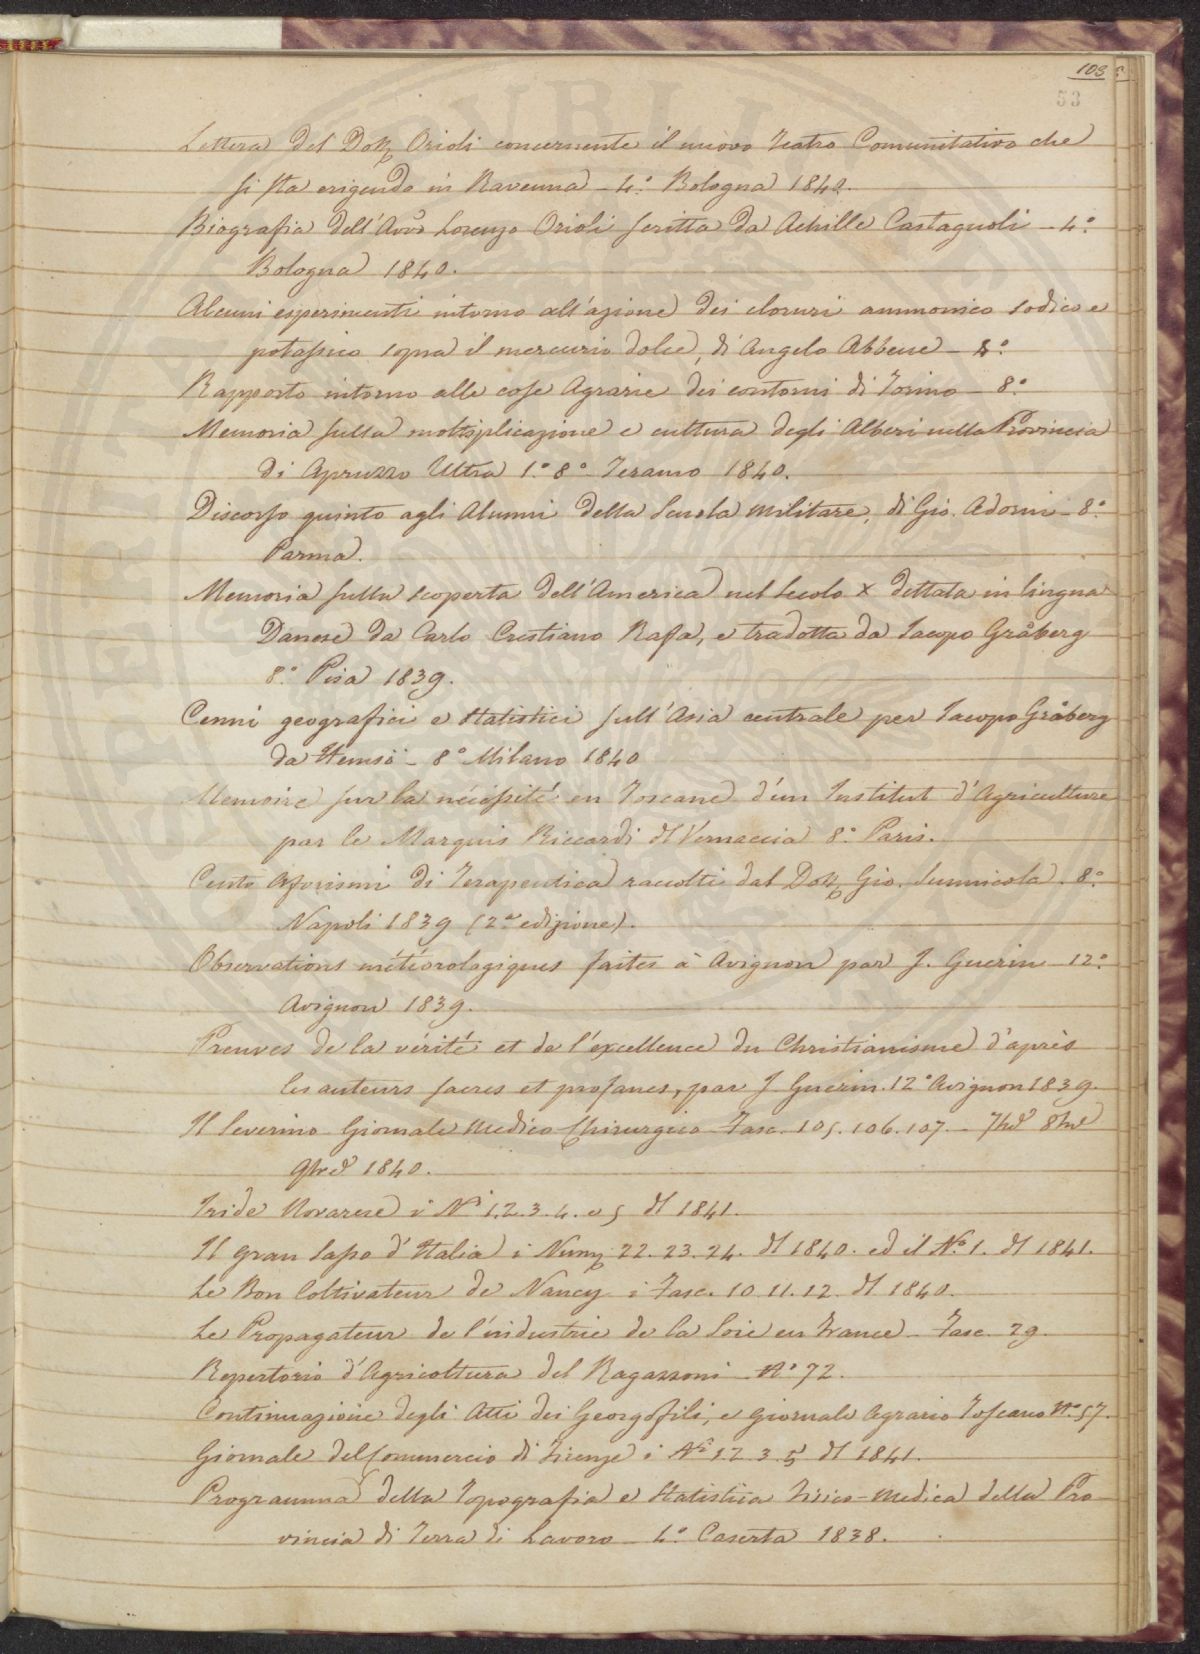 103
53
Lettera del Dott. Orioli concernente il nuovo Teatro Comunitativo che
si sta erigendo in Ravenna - 4.° Bologna 1840.
Biografia dell'Avv.° Lorenzo Orioli scritta da Achille Castagnoli - 4.°
Bologna 1840.
Alcuni esperimenti intorno all'azione dei cloruri ammonico sodico e
potassico sopra il mercurio dolce, di Angelo Abbene - 8.°
Rapporto intorno alle cose Agrarie dei contorni di Torino - 8.°
Memoria sulla moltiplicazione e cultura degli Alberi nella Provincia
di Apruzzo Ultra 1.° 8.° Teramo 1840.
Discorso quinto agli Alunni della Scuola militare, di Gio. Adorni - 8.°
Parma.
Memoria sulla scoperta dell'America nel Secolo X dettata in lingua
Danese da Carlo Cristiano Rafa, e tradotta da Jacopo Gråberg
8.° Pisa 1839.
Cenni geografici e statistici sull'Asia centrale per Jacopo Gråberg
da Hemsö - 8.° Milano 1840
Memoire sur la nécéssité en Toscane d'un Institut d'Agriculture
par le Marquis Riccardi d Vernaccia 8.° Paris.
Cento Aforismi di Terapeutica raccolti dal Dott. Gio. Sannicola. 8.°
Napoli 1839 (2.a edizione).
Observations météorologiques faites à Avignon par J. Guerin 12.°
Avignon 1839.
Preuves de la vérité et de l'excellence du Christianisme d'après
les auteurs sacres et profanes, par J Guerin. 12.° Avignon 1839.
Il Severino Giornale Medico Chirurgico Fasc. 105. 106. 107. - 7bre 8bre
9bre 1840.
Iride Novarese i Ni 1. 2. 3. 4. e 5 d 1841.
Il gran Sasso d'Italia i Num. 22. 23. 24. d 1840. ed il N.° 1. d 1841.
Le Bon Coltivateur de Nancy i Fasc. 10. 11. 12. d 1840.
Le Propagateur de l'industrie de la Soie en France - Fasc. 29.
Repertorio d'Agricoltura del Ragazzoni N.° 72.
Continuazione degli Atti dei Georgofili, e Giornale Agrario Toscano N.° 57.
Giornale del Commercio di Firenze i Ni 1. 2. 3. 5 d 1841.
Programma della Topografia e Statistica Fisico-Medica della Pro-
vincia di Terra di Lavoro - 4.° Caserta 1838.